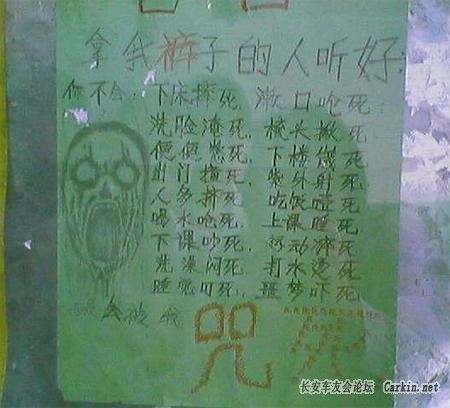 拿我裤子的人听好:
你不会: 下床摔死, 漱口呛死:
洗脸淹死, 梳头揪死
便便熏死, 下楼 死
出门 死, 紫外射死
人多挤死, 吃饭噎死
喝水呛死, 上课睡死
下课吵死, 运动猝死
洗澡闷死, 打水烫死
睡觉叮死, 噩梦吓死
会被我
咒
死
长安车友会论坛 Carkin.net